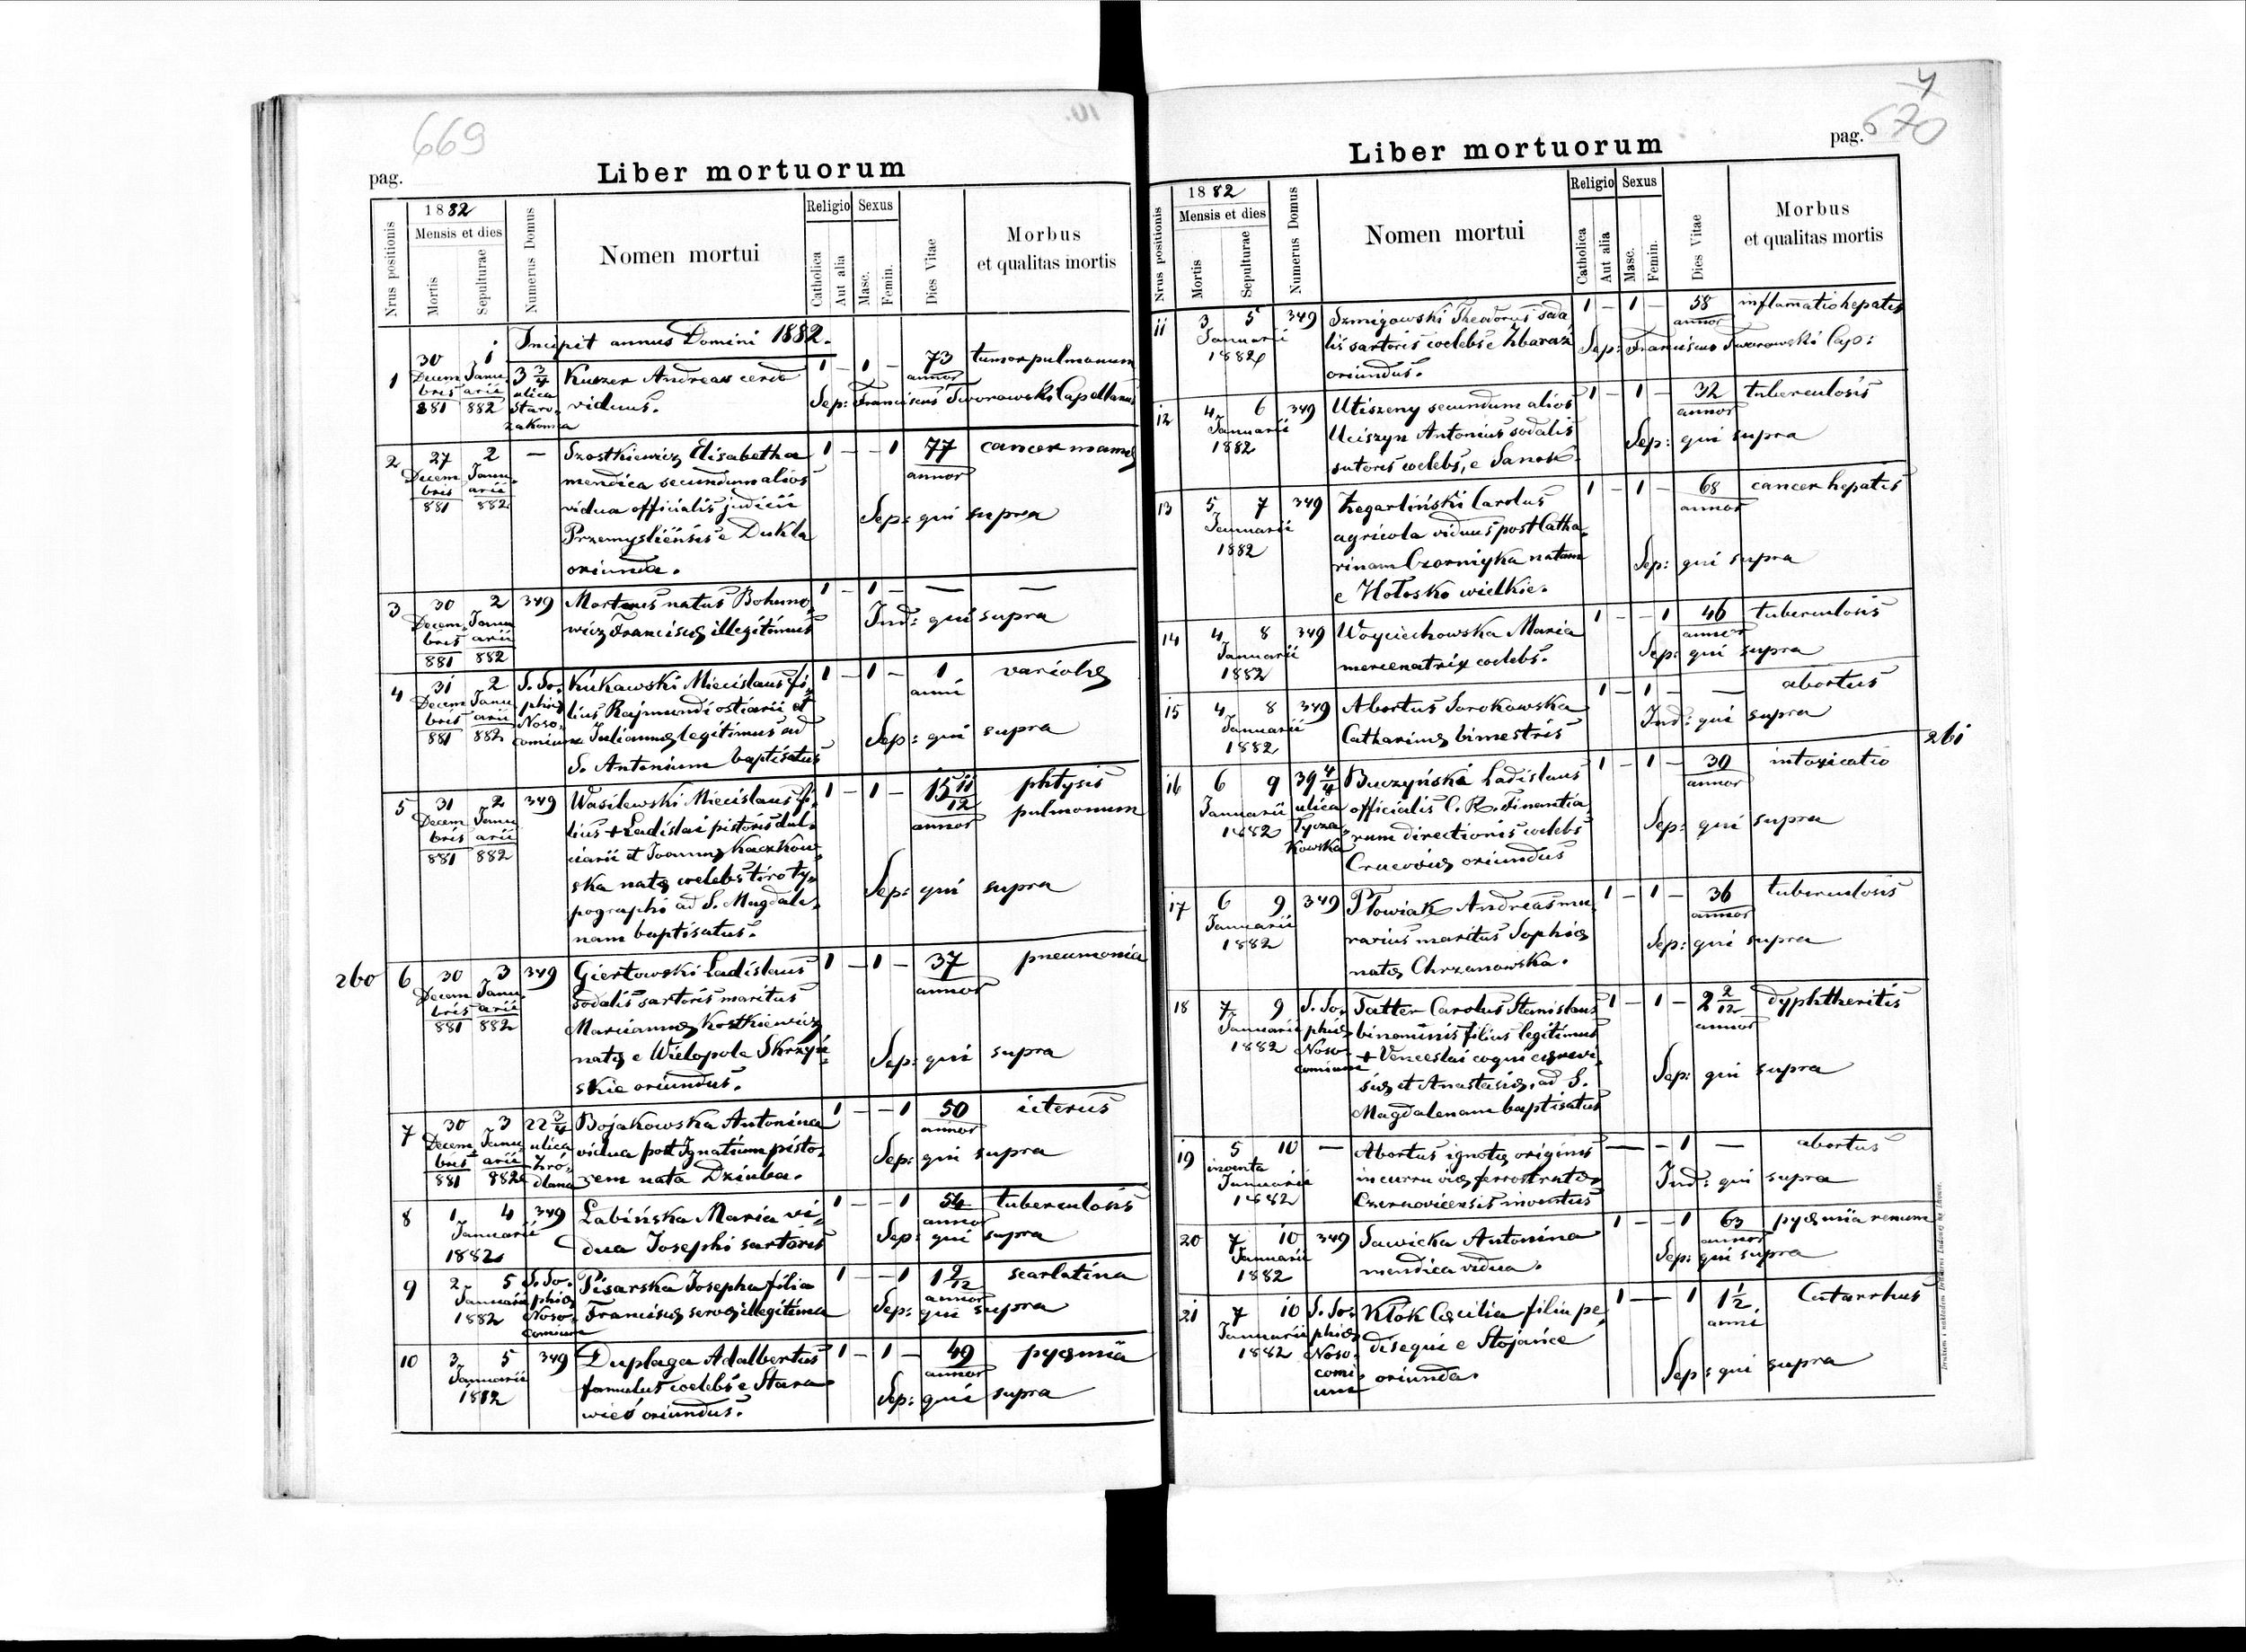 669
Liber mortuorum
pag.
Nrus positionis
1882
Mensis et dies
Mortis
Sepulturae
Numerus Domus
Nomen mortui
Religio
Catholica
Aut alia
Sexus
Masc.
Femin.
Dies Vitae
Morbus
et qualitas mortis
Incipit annus Domini 1882.
1
30 Decem bris 881
1 Janu arii 882
3 3/4 ulica Staro zakonna
Kuszer Andreas
viduus.
1 - 1 -
73 annor
tumor pulmonum
Sep: Franciscus Tworowski Capellanus
2
27 Decem bris 881
2 Janu. arii 882
-
Szostkiewicz Elisabetha
mendica secundum alios
vidua officialis judicii
Przemysliensis e Dukla
oriunda.
1 - - 1
77 annor
cancer mamæ
Sep: qui supra
3
30 Decem. bris 881
2 Janu arii 882
349
Mortuus natus Bohuno
wicz Franciscæ illegitimus
1 - 1 - - -
Ind: qui supra
4
31 Decem bris 881
2 Janu arii 882
S. So. phiæ Noso. comium
Kukawski Miecislaus fi,
lius Rajmundi ostiarii et
Juliannæ legitimus ad
S. Antonium baptisatus
1 - 1 -
1 anni
variolæ
Sep: qui supra
5
31 Decem bris 881
2 Janu arii 882
349
Wasilewski Miecislaus fi,
lius + Ladislai pistoris dul,
ciarii et Joannæ Kaczkow
ska natæ coelebs tiro ty,
pographi ad S. Magdale,
nam baptisatus.
1 - 1 -
15 11/12 annor
phtysis
pulmonum
Sep: qui supra
260
6
30 Decem bris 881
3 Janu. arii 882
349
Giertowski Ladislaus
sodalis sartoris maritus
Mariannæ Kostkiewicz
natæ e Wielopole Skrzyń,
skie oriundus.
1 - 1 -
37 annor
pneumonia
Sep: qui supra
7
30 Decem bris 881
3 Janu arii 882
22 3/4 ulica Źró, dlana
Bojakowska Antonina
vidua post Ignatium pisto,
rem nata Dziuba.
1 - - 1
50 annor
icterus
Sep: qui supra
8
1 4
Januarii
1882
349
Labińska Maria vi,
dua Josephi sartoris
1 - - 1
54 annor
tuberculosis
Sep: qui supra
9
2 5
Januarii
1882
S. So. phiæ Noso. comium
Pisarska Josepha filia
Franciscæ servæ illegitima
1 - - 1
1 9/12 annor
scarlatina
Sep: qui supra
10
3 5
Januarii
1882
349
Duplaga Adalbertus
famulus coelebs e Stara
wieś oriundus.
1 - 1 -
49 annor
pyæmia
Sep: qui supra
4
670
Liber mortuorum
pag.
Nrus positionis
1882
Mensis et dies
Mortis
Sepulturae
Numerus Domus
Nomen mortui
Religio
Catholica
Aut alia
Sexus
Masc.
Femin.
Dies Vitae
Morbus
et qualitas mortis
11
3 5
Januarii
1882
349
Szmigowski Theodorus soda
lis sartoris coelebs e Zbaraż
oriundus.
1 - 1 -
58 annor
inflamatio hepatis
Sep: Franciscus Tworowski Cap:
12
4 6
Januarii
1882
349
Utiszeny secundum alios
Uciszyn Antonius sodalis
sutoris coelebs, e Sanok.
1 - 1 -
32 annor
tuberculosis
Sep: qui supra
13
5 7
Januarii
1882
349
Zegarliński Carolus
agricola viduus post Catha,
rinam Czorniyka natam
e Hołosko wielkie.
1 - 1 -
68 annor
cancer hepatis
Sep: qui supra
14
4 8
Januarii
1882
349
Woyciechowska Maria
mercenatrix coelebs.
1 - - 1
46 annor
tuberculosis
Sep: qui supra
15
4 8
Januarii
1882
349
Abortus Sorokowska
Catharinæ bimestris
1 - 1 - -
abortus
Ind: qui supra
261
16
6 9
Januarii
1882
39 4/4 ulica Łycza kowska
Buczyński Ladislaus
officialis C. R. Finantia
rum directionis coelebs
Cracoviæ oriundus
1 - 1 -
30 annor
intoxicatio
Sep: qui supra
17
6 9
Januarii
1882
349
Płowiak Andreas mu,
rarius maritus Sophiæ
natæ Chrzanowska.
1 - 1 -
36 annor
tuberculosis
Sep: qui supra
18
7 9
Januarii
1882
S. So. phiæ Noso- comium
Tatter Carolus Stanislaus
binominis filius legitimus
+ Venceslai coqui
et Anastasiæ, ad S.
Magdalenam baptisatus
1 - 1 -
2 2/12 annor
dyphtheritis
Sep: qui supra
19
5 10
inventa
Januarii
1882
-
Abortus ignotæ originis
in curru viæ ferrostratæ
Czernovicensis inventus
- - 1 -
abortus
Ind: qui supra
20
7 10
Januarii
1882
349
Sawicka Antonina
mendica vidua.
1 - - 1
63 annor
pyæmia renum
Sep: qui supra
21
7 10
Januarii
1882
S. So. phiæ Noso. comi um
Kłok Cæcilia filia pe,
disequi e Stojańce
oriunda.
1 - - 1
1 1/2 anni
Catarrhus
Sep: qui supra